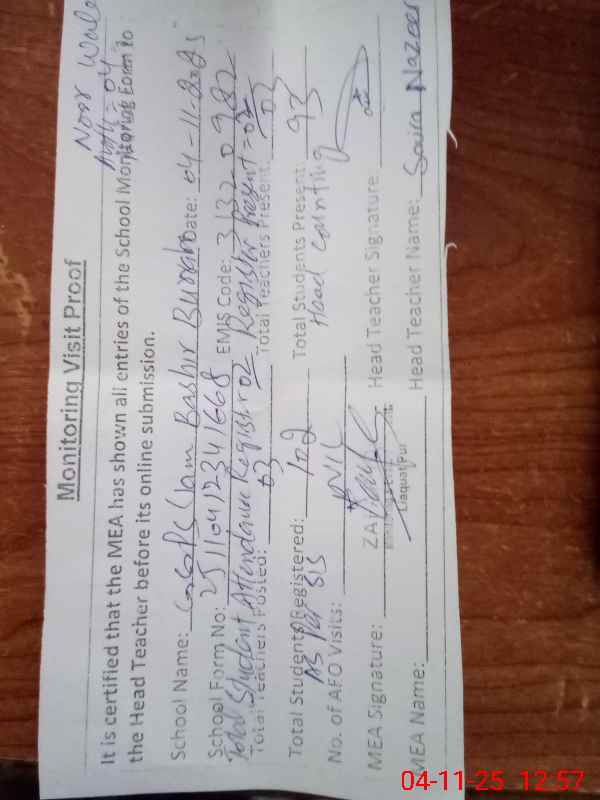 Noor Wala
Monitoring Visit Proof
It is certified that the MEA has shown all entries of the School Monitoring Form to
the Head Teacher before its online submission.
School Name: Jam Bashir Date: 04-11-2025
School Form No: 25110412341668 EMIS Code: 31320982
Total Student Attendance Register 02 Register Present = 02
Total Teachers Posted: 03 Total Teachers Present: 03
Total Students Registered: 102 Total Students Present: 93
As Per SIS Head Counting
No. of AFO Visits: NIL
MEA Signature: Head Teacher Signature:
Liaquat Pur
MEA Name: Head Teacher Name: Saira Nazeer
04-11-25 12:57